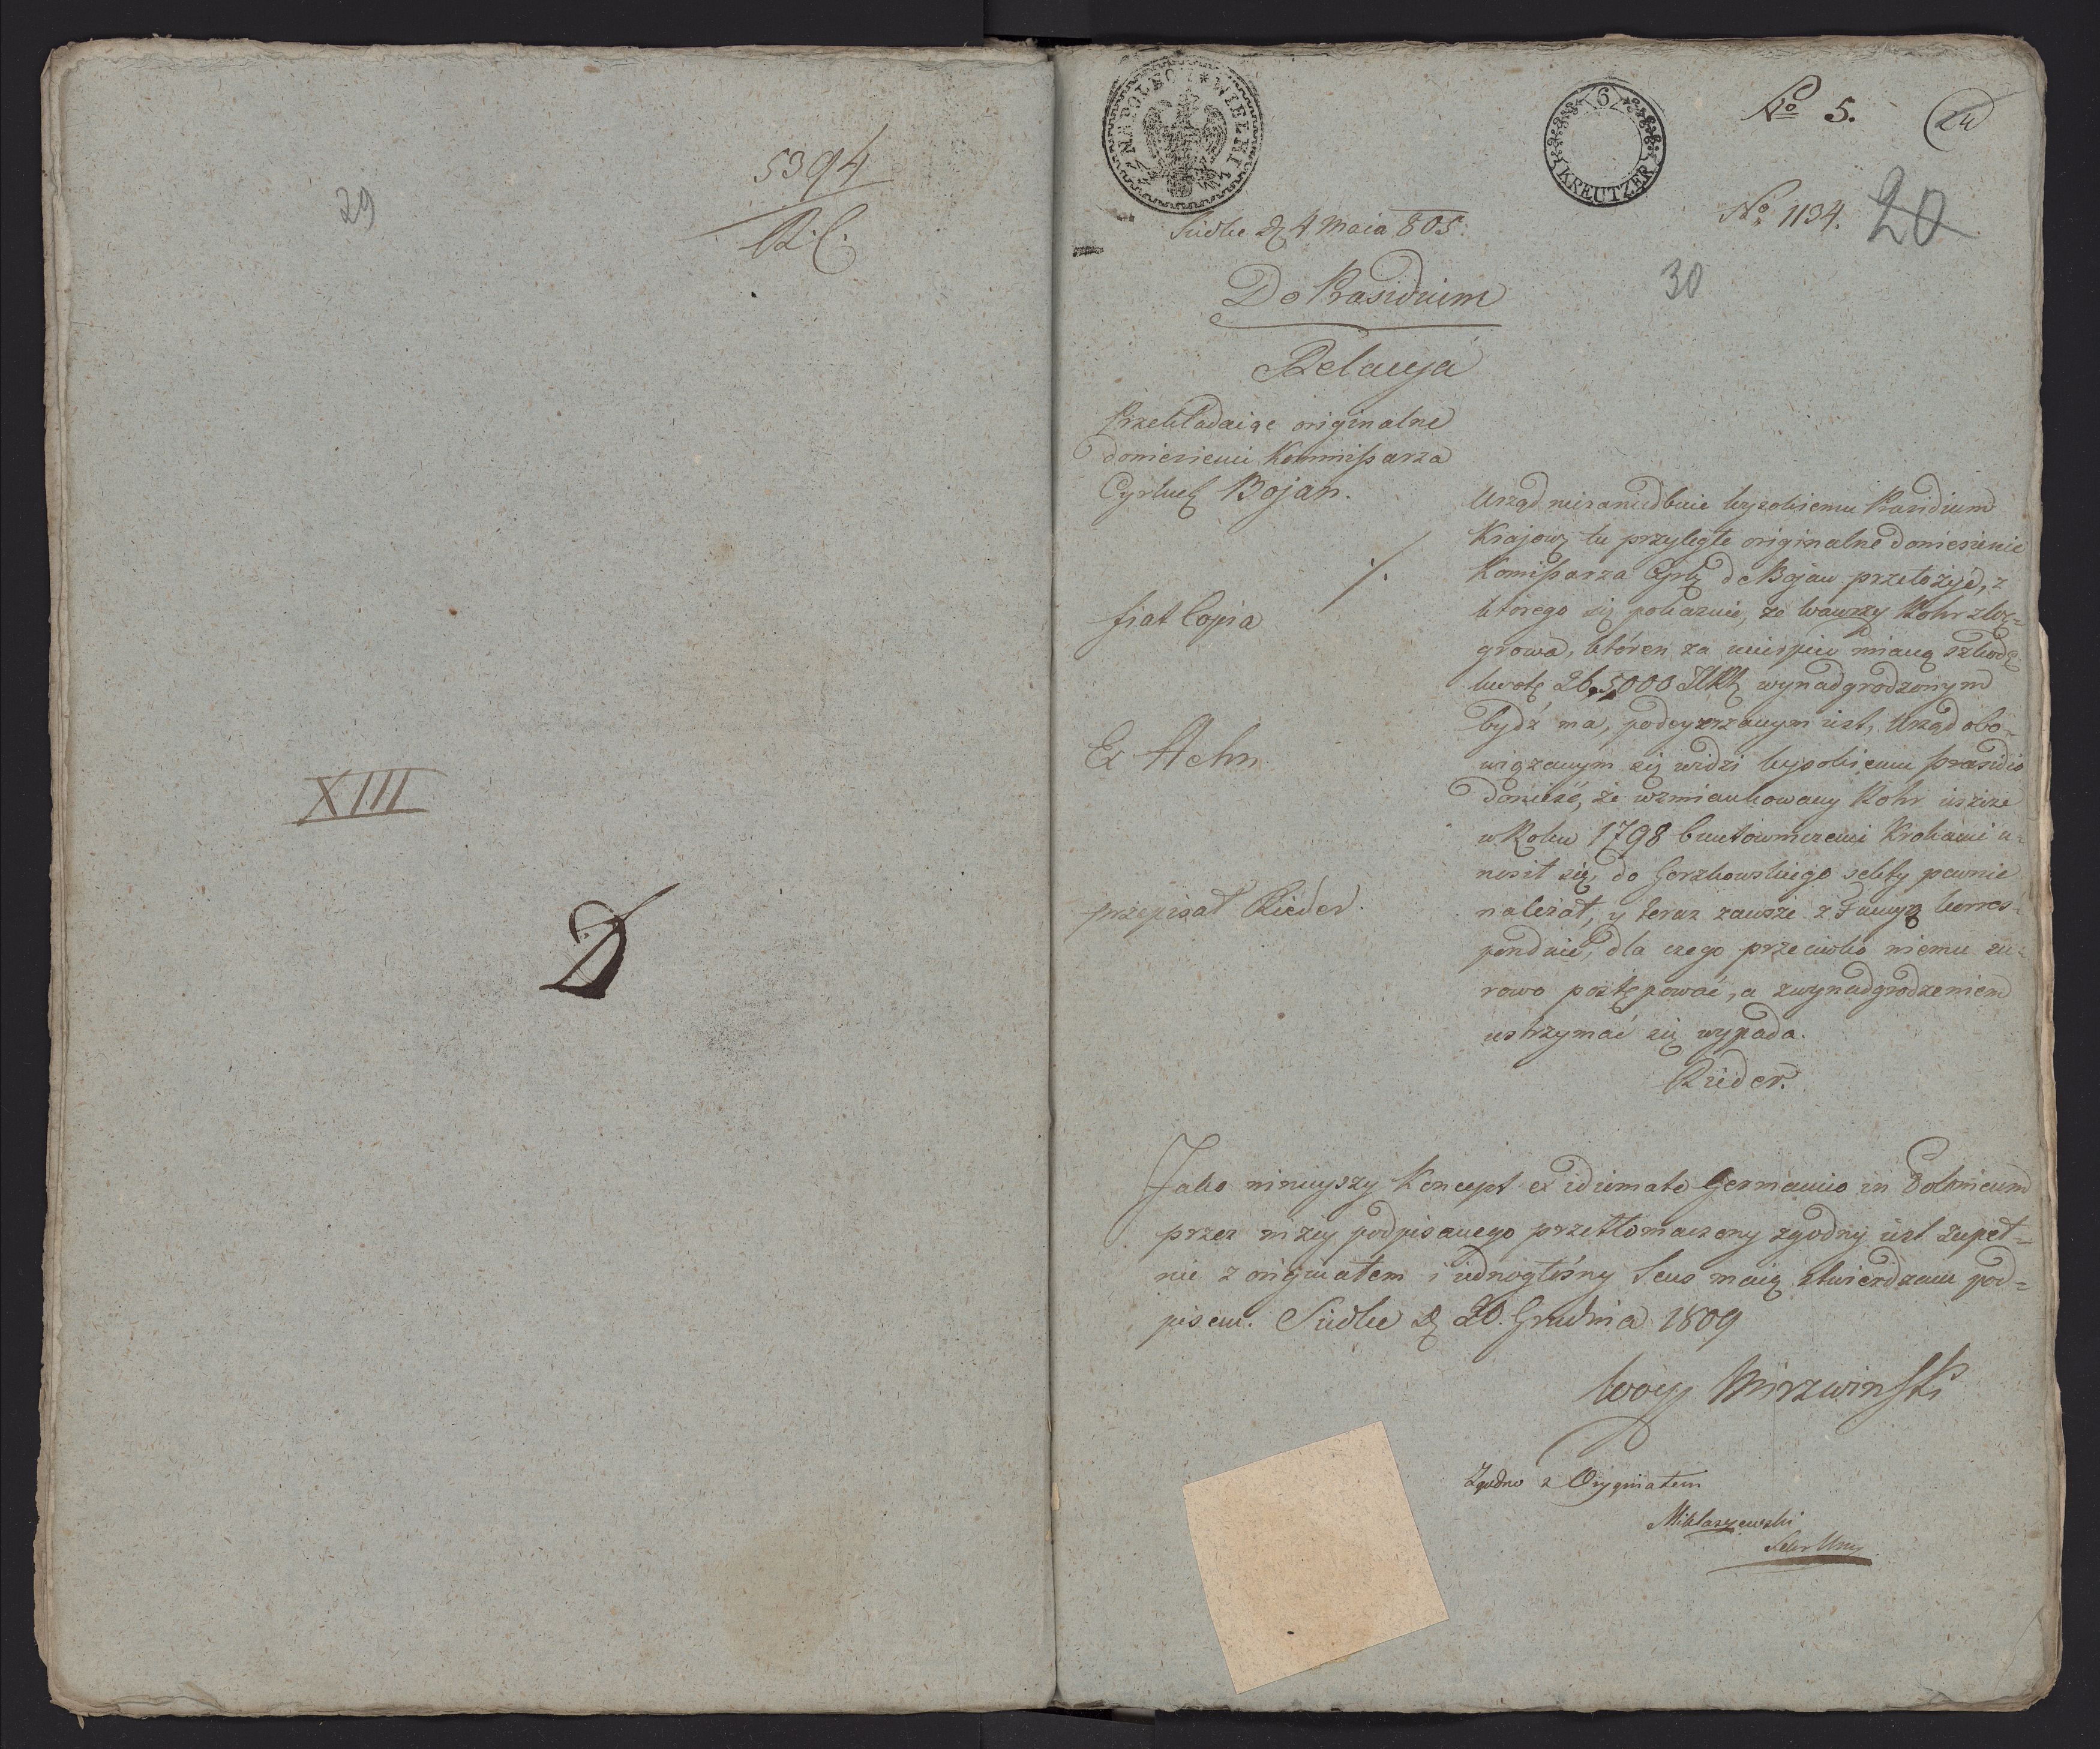 29
5394
R. C.
XIII
D
NAPOLEON * WIELKI
6
KREUTZER
No 5.
24
No 1134.
20
30
Siedlce d. 4 Maia 805.
Do Præsidium
Relacyja
Przekładaiąc originalne
doniesienie Kommissarza
Cyrkuł Bojan.
fiat Copia
Ex Actm
przepisał Rieder.
Urząd niezaniedbuie wysokiemu Præsidium
Kraiowey tu przyległe originalne doniesienie
Komissarza Cyrk. de Bojan przełożyć, z
którego się pokazuie, że Wawrzy Rohr z Wę-
growa, któren za mianą szkodę
kwotę 5000 wynadgrodzonym
bydź ma, podeyrzanym iest, Urząd obo-
wiązanym się widzi wysokiemu præsidio
donieść, że wzmiankowany Rohr ieszcze
w Roku 1798 buntowniczemi Krokami u-
nosił się, do Gorzkowskiego sekty pewnie
należał, y teraz zawsze z korres-
ponduie, dla czego przeciwko niemu su-
rowo postępować, a z wynadgrodzeniem
wstrzymać się wypada.
Rieder.
Jako ninieyszy Koncept ex idiomate Germanico in Polonicum
przez niżey podpisanego przetłomaczony zgodny iest zupeł-
nie z originałem i iednogłośny Sens maią stwierdzam pod-
pisem. Siedlce d. 20. Grudnia 1809
Woyc Mirzwinski
Zgodno z Oryginałem
Miklaszewski
Sekr